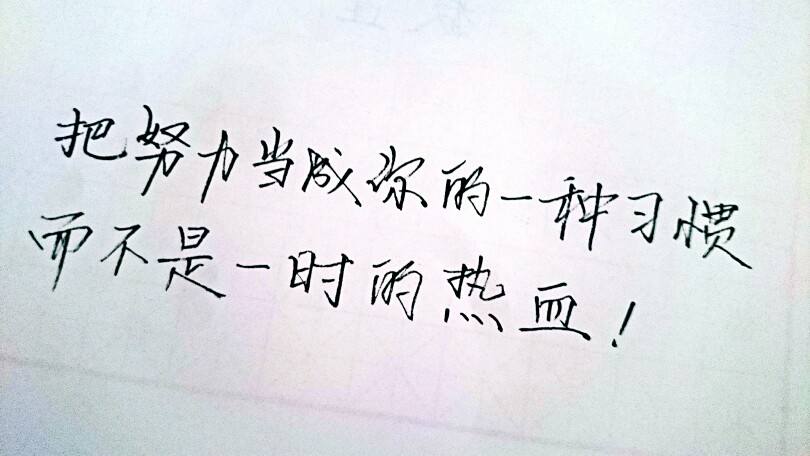 把努力当成你的一种习惯
而不是一时的热血！